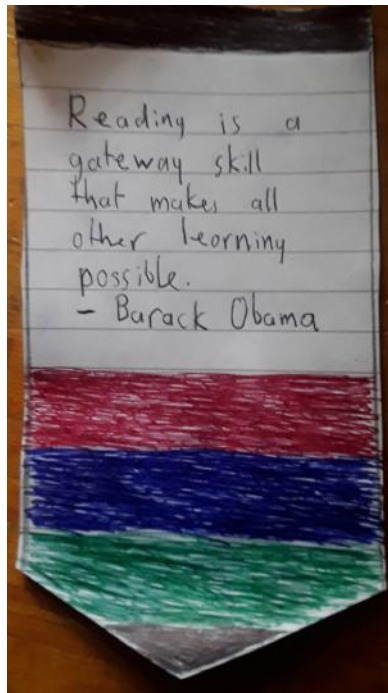 Reading is a
gateway skill
that makes all
other learning
possible.
- Barack Obama